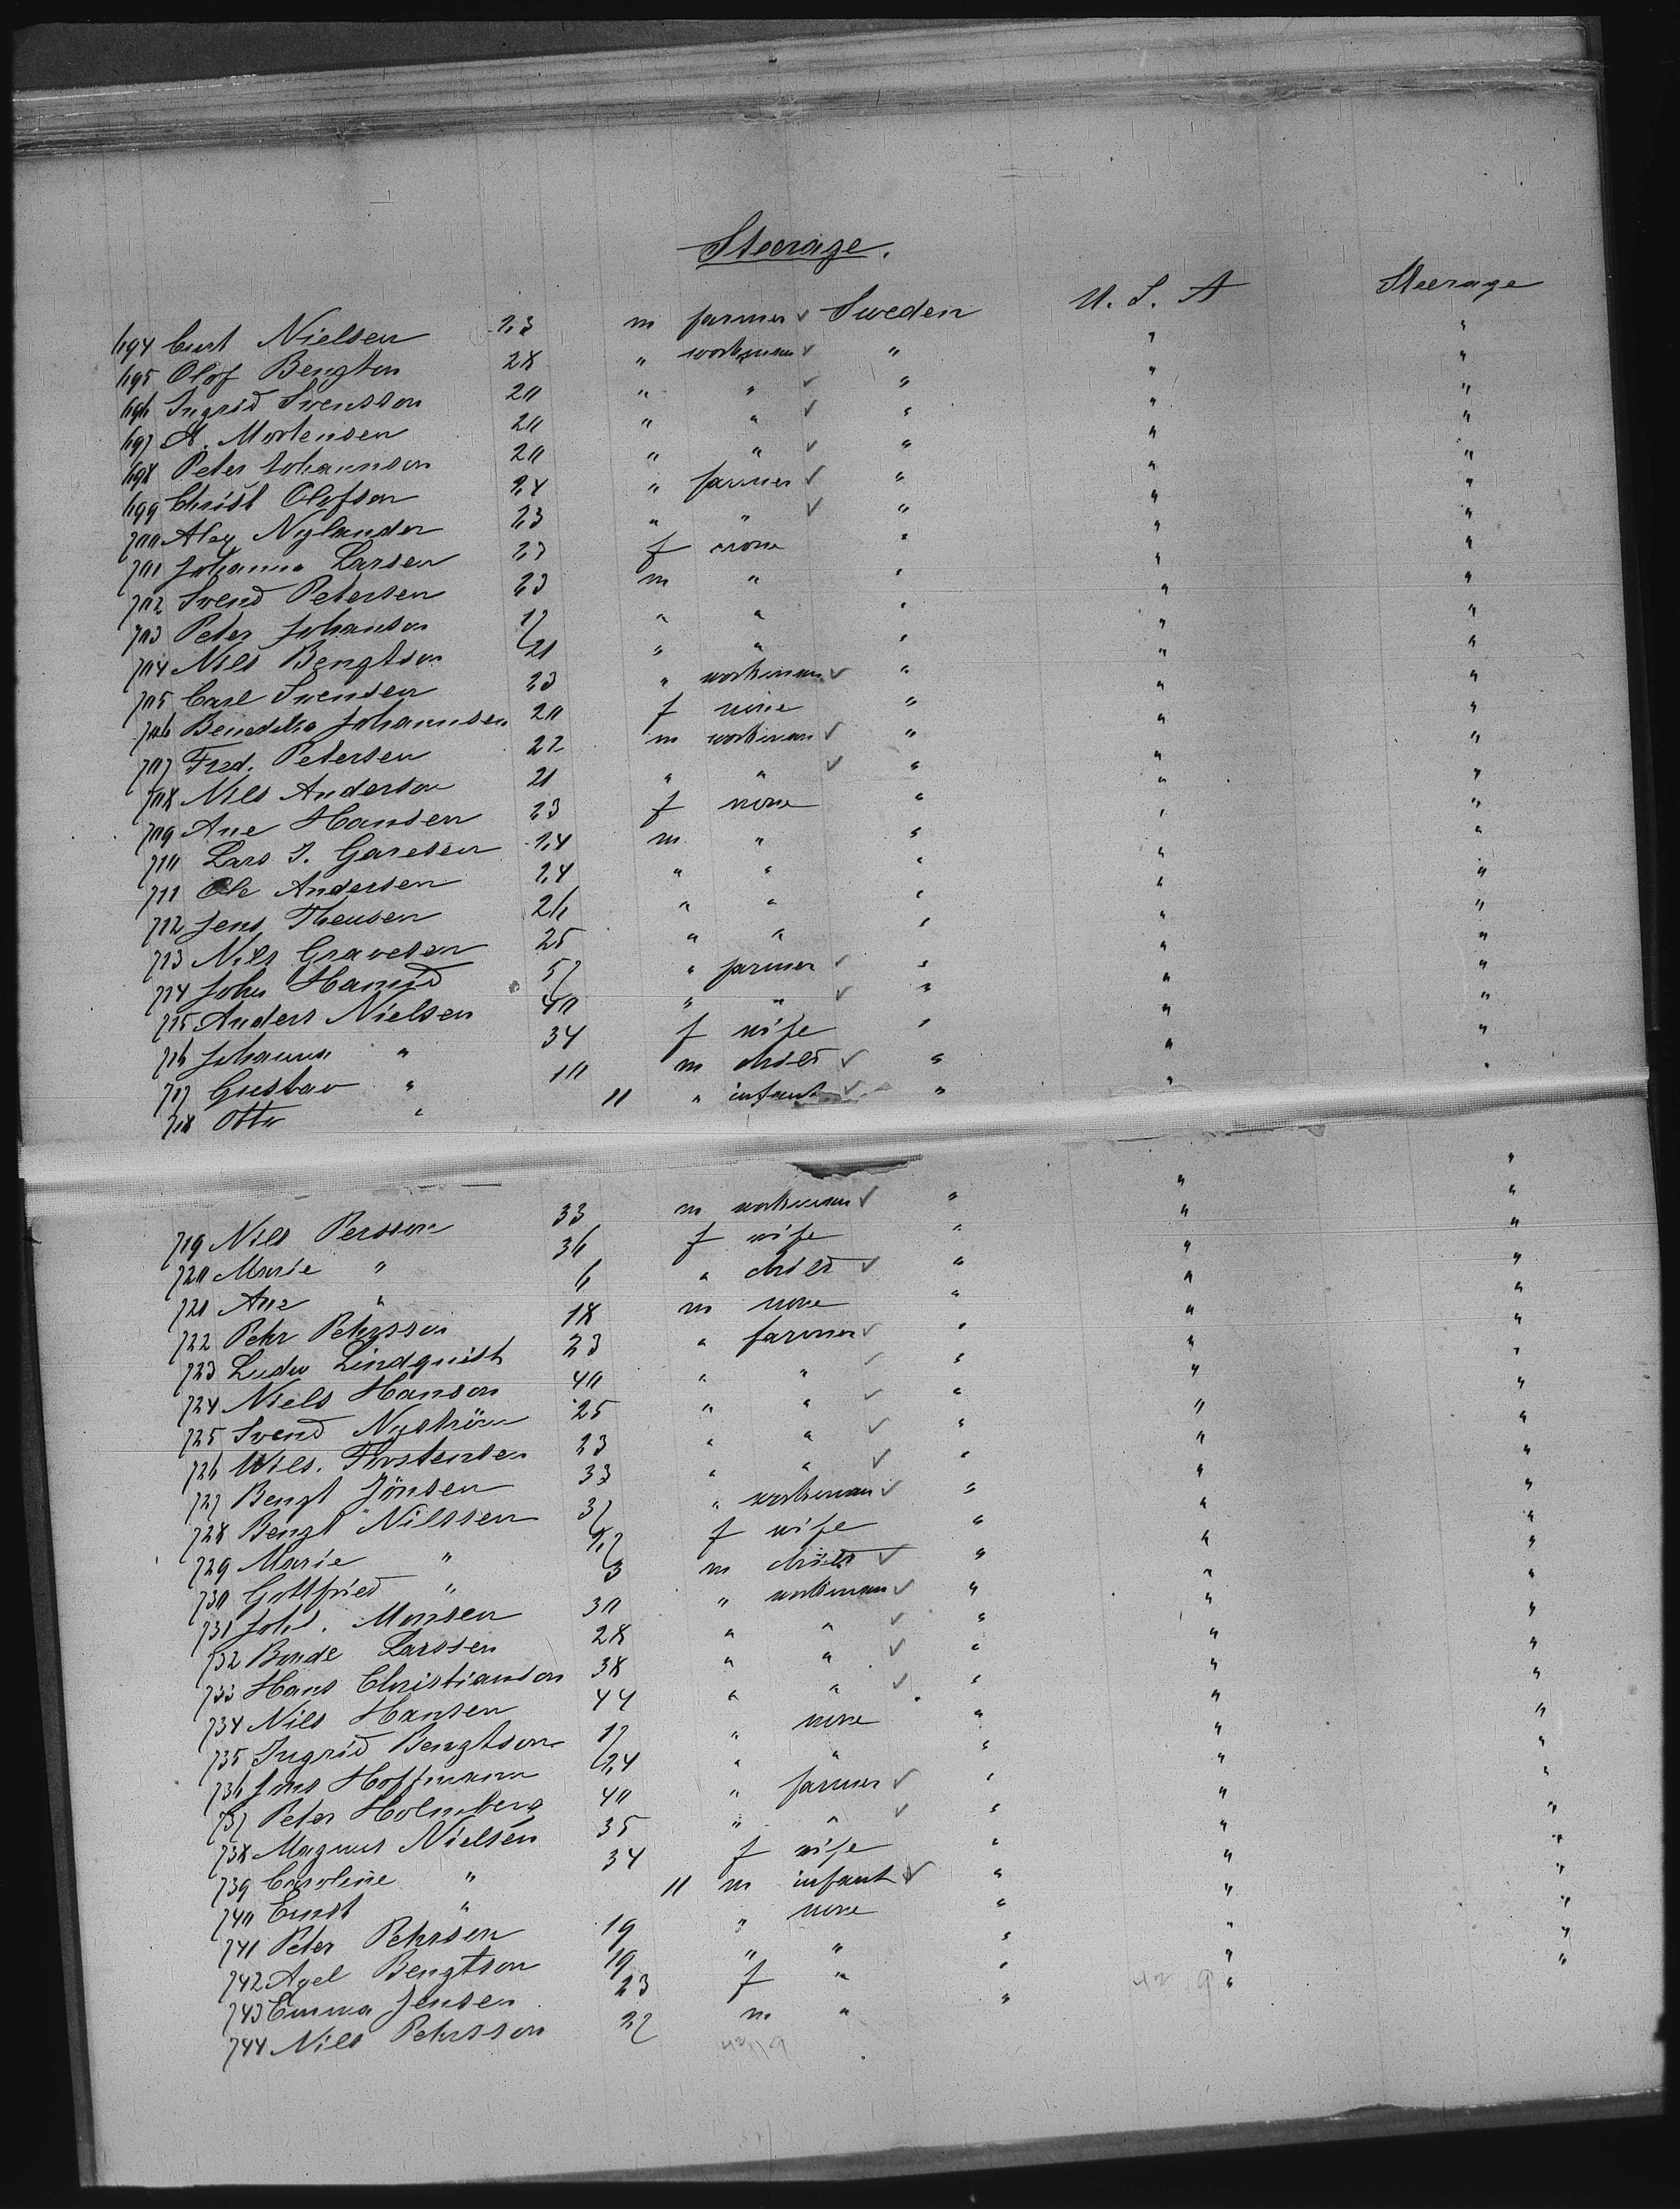 Steerage.
694 Curt Nielsen 23 m farmer Sweden U. S. A Steerage
695 Olof Bengtson 28 " workman " " "
696 Ingrid Svensson 20 " " " " "
697 A. Mortensen 20 " " " " "
698 Peter Johannson 20 " " " " "
699 Christ Olofson 24 " farmer " " "
700 Alex Nylander 23 " " " " "
701 Johanna Larsen 27 f none " " "
702 Svend Petersen 23 m " " " "
703 Peter Johanson 17 " " " " "
704 Nils Bengtson 21 " " " " "
705 Carl Svensen 23 " workman " " "
706 Benedikta Johannsen 20 f none " " "
707 Fred. Petersen 22 m workman " " "
708 Nils Anderson 21 " " " " "
709 Ane Hansen 23 f none " " "
710 Lars J. Garesen 24 m " " " "
711 Ole Andersen 24 " " " " "
712 Jens Theusen 26 " " " " "
713 Nils Gravesen 25 " " " " "
714 John 57 " farmer " " "
715 Anders Nielsen 40 " " " " "
716 Johanna " 34 f wife " " "
717 Gustav " 10 m child " " "
718 Otto " 11 " infant " " "
719 Nils Persson 33 m workman " " "
720 Marie " 36 f wife " " "
721 Ane " 6 " child " " "
722 Pehr Pehrsson 18 m none " " "
723 Ludw Lindquist 23 " farmer " " "
724 Niels Hanson 40 " " " " "
725 Svend Nyström 25 " " " " "
726 Wils. Torstensen 23 " " " " "
727 Bengt Jönsen 33 " " " " "
728 Bengt Nilssen 37 " workman " " "
729 Marie " 27 f wife " " "
730 Gottfried " 3 m child " " "
731 Johs. Monsen 30 " workman " " "
732 Bonde Larssen 28 " " " " "
733 Hans Christianson 38 " " " " "
734 Nils Hansen 44 " " " " "
735 Ingrid Bengtson 17 " none " " "
736 Jons Hoffmann 24 " " " " "
737 Peter Holmberg 40 " farmer " " "
738 Magnus Nielsen 35 " " " " "
739 Caroline " 34 f wife " " "
740 Ernst " 11 m infant " " "
741 Peter Pehrsen 19 " none " " "
742 Axel Bengtson 19 " " " " "
743 Emma Jensen 23 f " " " "
744 Nils Pehrsson 27 m " " "